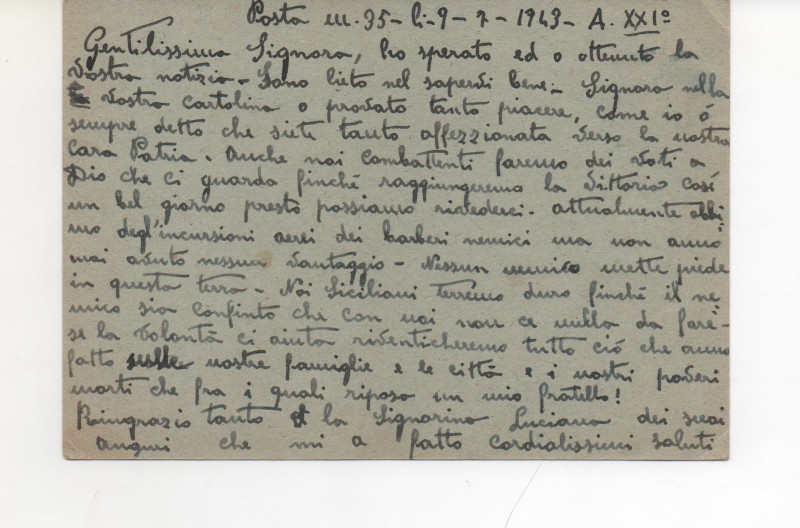 Posta m. 35 - li - 9 - 7 - 1943 - A. XXI°
Gentilissima Signora, ho sperato ed o ottenuto la
Vostra notizia - Sono lieto nel sapervi bene - Signora nella
Vostra cartolina o provato tanto piacere, come io ó
sempre detto che siete tanto affezzionata verso la nostra
Cara Patria. Anche noi Combattenti faremo dei voti a
Dio che ci guarda finché raggiungeremo la Vittoria così
un bel giorno presto possiamo rivederci - attualmente abbi
mo degl'incursioni aerei dei barberi nemici ma non anno
mai avuto nessun vantaggio - Nessun nemico mette piede
in questa terra - Noi Siciliani terremo duro finché il ne
mico sia Confinto che con noi non ce nulla da fare -
se la Volontà ci aiuta riventicheremo tutto ciò che anno
fatto sulle nostre famiglie e le città e i nostri poveri
morti che fra i quali riposa un mio fratello!
Ringrazio tanto la Signorina Luciana dei suoi
auguri che mi a fatto cordialissimi saluti